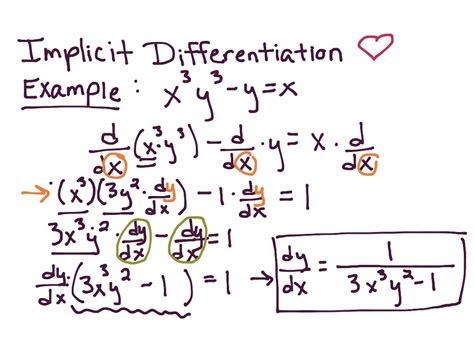 Implicit Differentiation ♡
Example: x³y³-y=x
d/dx(x³·y³) - d/dx·y = x·d/dx
→ (x³)(3y²·dy/dx) - 1·dy/dx = 1
3x³y²·dy/dx - dy/dx = 1
dy/dx·(3x³y²-1) = 1 → dy/dx = 1/(3x³y²-1)